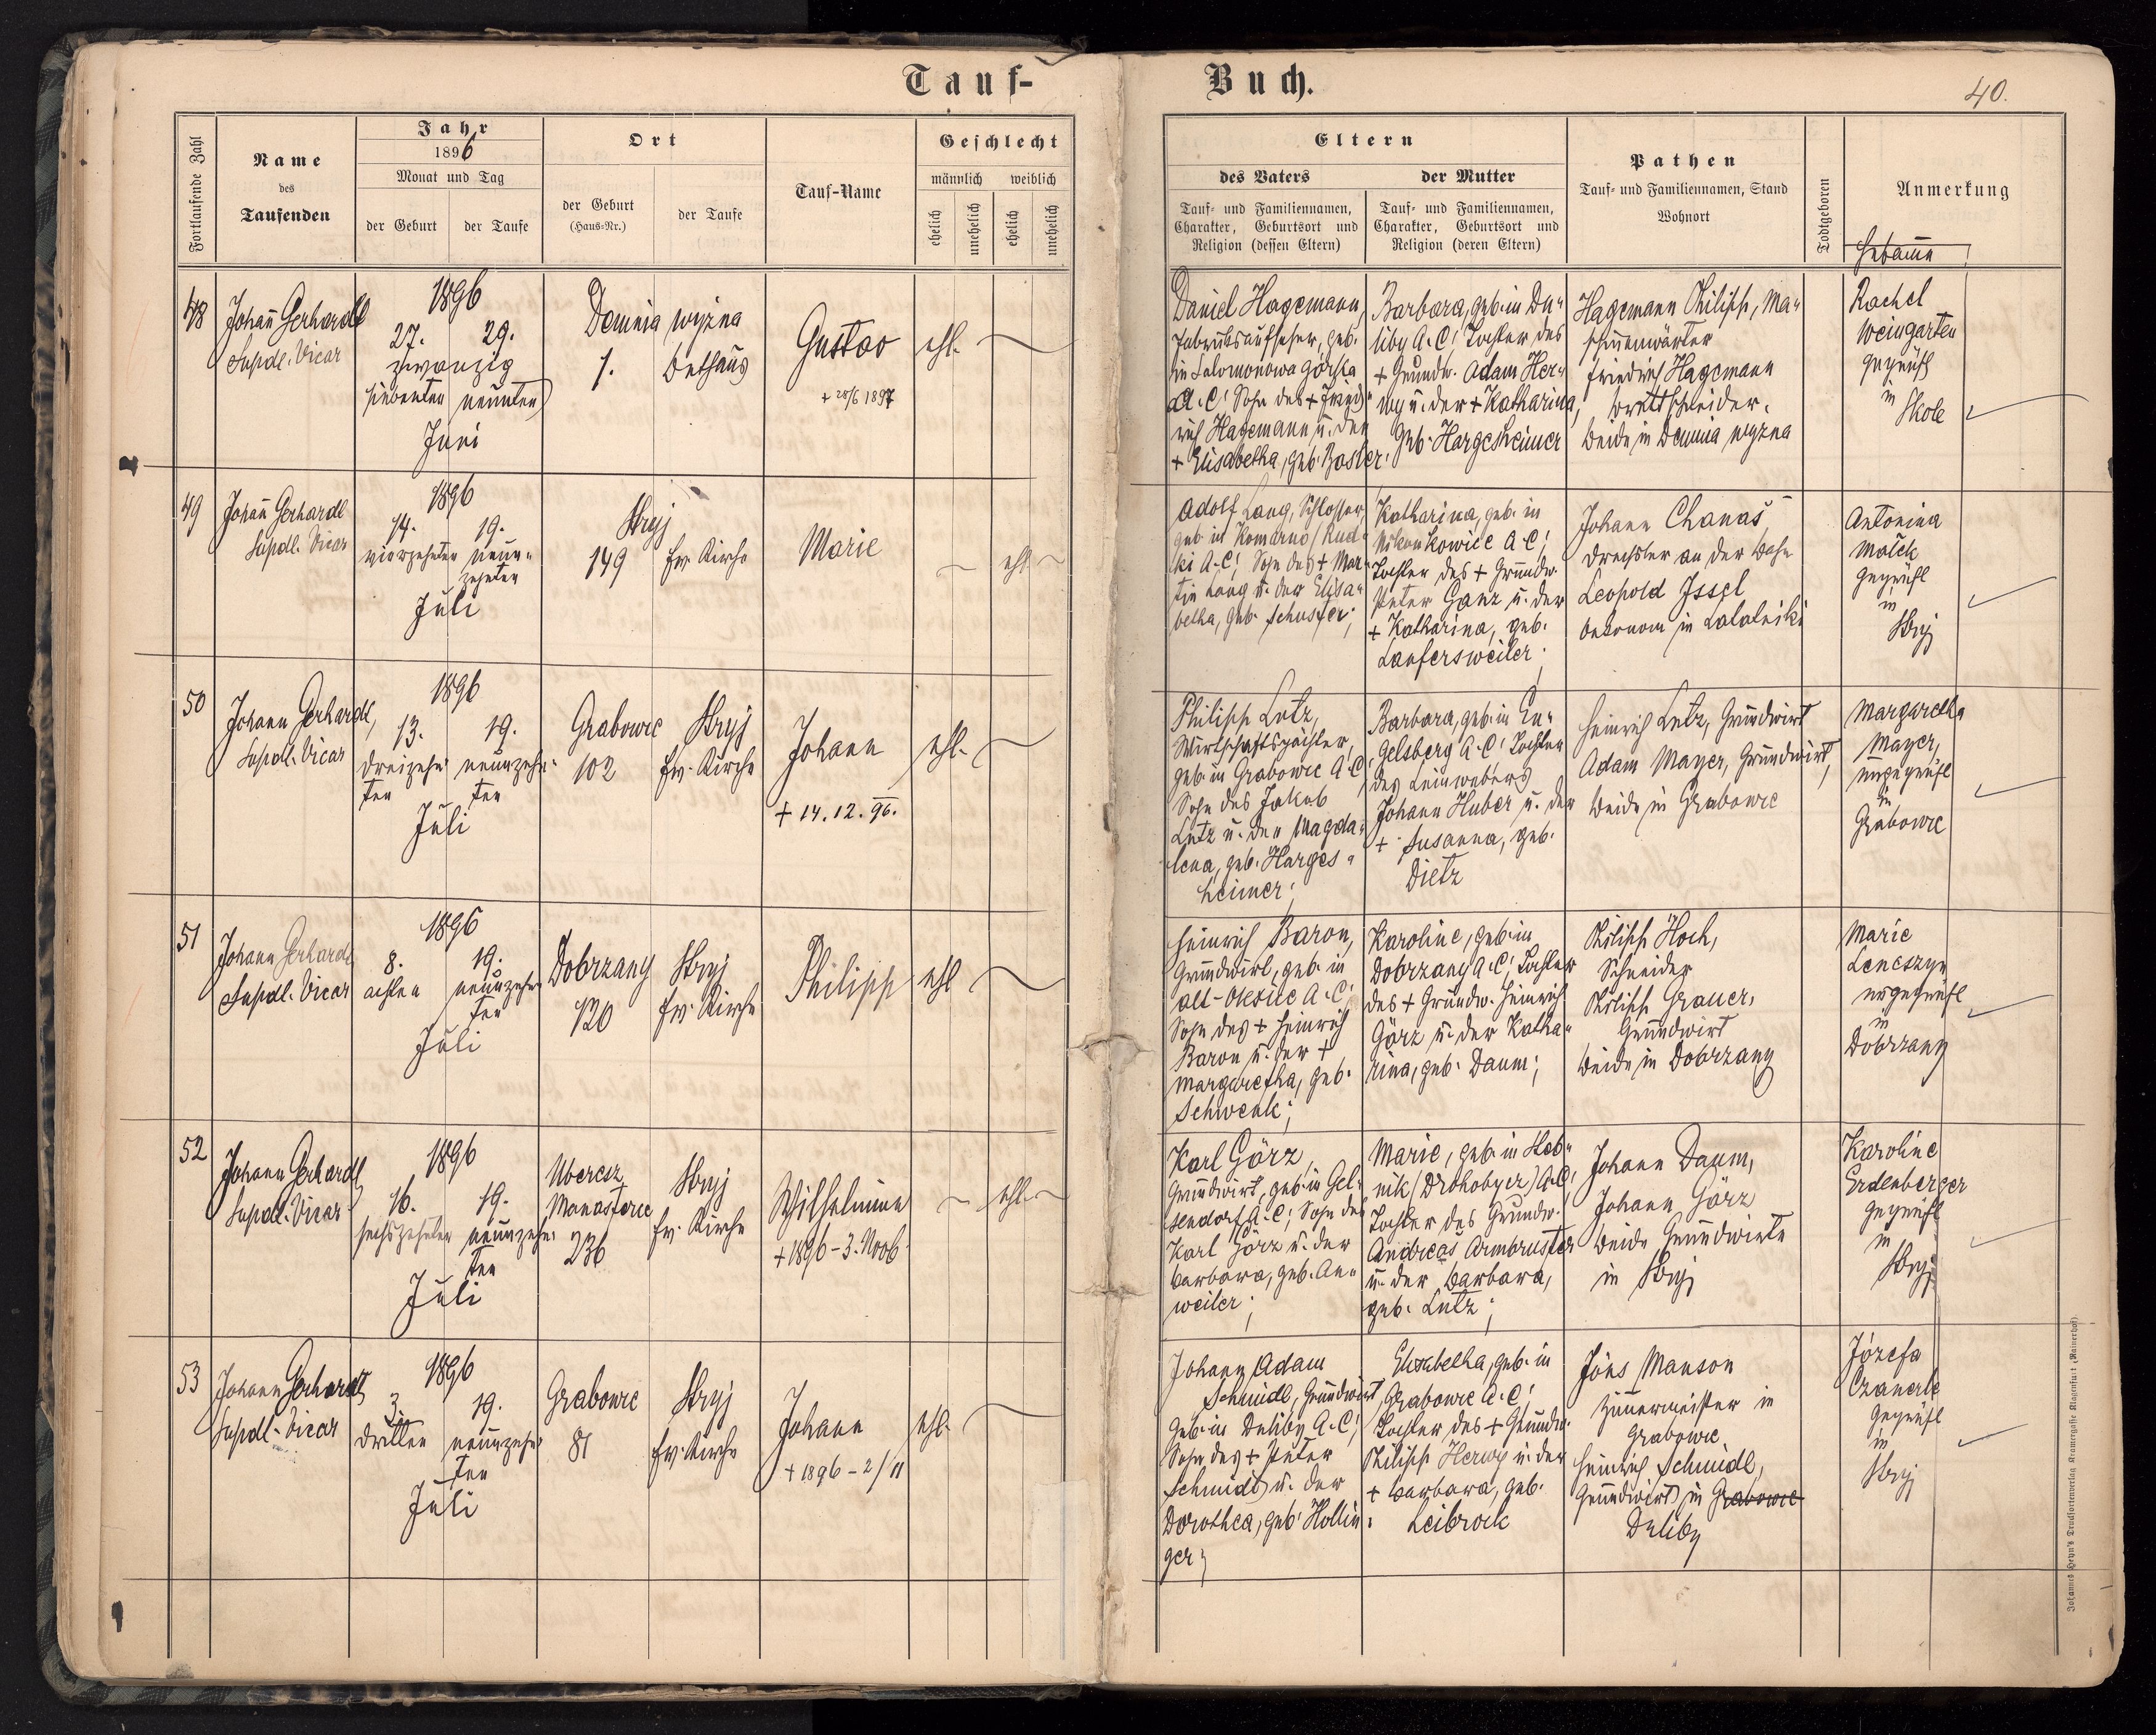 Tauf-
Buch.
40.
Fortlaufende Zahl
Name
des
Taufenden
Jahr
1896
Monat und Tag
der Geburt
der Taufe
Ort
der Geburt
(Haus-Nr.)
der Taufe
Tauf-Name
Geschlecht
männlich weiblich
ehelich
unehelich
ehelich
unehelich
Eltern
des Vaters
der Mutter
Tauf- und Familiennamen,
Charakter, Geburtsort und
Religion (dessen Eltern)
Tauf- und Familiennamen,
Charakter, Geburtsort und
Religion (deren Eltern)
Pathen
Tauf- und Familiennamen, Stand
Wohnort
Todtgeboren
Anmerkung
Hebamme
48
Johann Gerhardt
Supdl. Vicar
1896
27. 29.
zwanzig
siebenten neunten
Juni
Demnia wyzna
1. Bethaus
Gustav
+ 28/6 1897
ehl.
Daniel Hagemann,
Fabriksaufseher, geb.
in Salomonowa Górka
A.C! Sohn des + Fried-
rich Hagemann u. der
+ Elisabetha, geb. Basler.
Barbara, geb. in Du-
liby A.C! Tochter des
+ Grundw. Adam Her-
wy u. der + Katharina,
geb. Hargesheimer
Hagemann Philipp, Ma-
schinenwärter
Friedrich Hagemann
Brettschneider.
beide in Demnia wyzna
Rachel
Weingarten
geprüft
in
Skole
49
Johann Gerhardt
Supdl. Vicar
1896
14. 19.
vierzehnten neun-
zehnten
Juli
Stryj
149 ev. Kirche
Marie
ehl.
Adolf Lang, Schlosser,
geb. in Komarno, Rud-
ki A.C! Sohn des + Mar-
tin Lang u. der Elisa-
betha, geb. Schuster;
Katharina, geb. in
Nikonkowice A.C!
Tochter des + Grundw.
Peter Ganz u. der
+ Katharina, geb.
Laufersweiler;
Johann Chanas,
Drechsler an der Bahn
Leopold Issel
Oekonom in
Antonina
geprüft
in
Stryj
50
Johann Gerhardt,
Supdl. Vicar
1896
13. 19.
dreizehn- neunzehn-
ten ten
Juli
Grabowce
102
Stryj
ev. Kirche
Johann
+ 14.12.96.
ehl.
Philipp Lutz,
Wirtschaftspächter,
geb. in Grabowce A.C
Sohn des Jakob
Lutz u. der Magda-
lena, geb. Harges-
heimer;
Barbara, geb. in En-
gelsberg A.C! Tochter
des Leinwebers
Johann Huber u. der
+ Susanna, geb.
Dietz
Heinrich Lutz, Grundwirt
Adam Mayer, Grundwirt,
beide in Grabowce
Margaretha
Mayer,
ungeprüft
in
Grabowce
51
Johann Gerhardt
Supdl. Vicar
1896
8. 19.
achten neunzehn-
ten
Juli
Dobrzany
120
Stryj
ev. Kirche
Philipp
ehl
Heinrich Baron,
Grundwirt, geb. in
alt-Oleszice A.C!
Sohn des + Heinrich
Baron u. der +
Margaretha, geb.
Schwenk;
Karoline, geb. in
Dobrzany A.C! Tochter
des + Grundw. Heinrich
Görz u. der Katha-
rina, geb. Daum;
Philipp Hoch,
Schneider
Philipp Grauer,
Grundwirt
beide in Dobrzany
Marie
ungeprüft
in
Dobrzany
52
Johann Gerhardt
Supdl. Vicar
1896
16. 19.
sechszehnten neunzehn-
ten
Juli
Uhercz
Manasterce
236
Stryj
ev. Kirche
Wilhelmine
+ 1896 - 3. Novb.
ehl.
Karl Görz,
Grundwirt, geb. in Gel-
sendorf A.C! Sohn des
Karl Görz u. der
Barbara, geb. An-
weiler;
Marie, geb. in Steb-
nik (Drohobycz) A.C!
Tochter des Grundw.
Andreas Armbruster
u. der Barbara,
geb. Lutz;
Johann Daum,
Johann Görz
beide Grundwirte
in Stryj
Karoline
Erdenberger
geprüft
in
Stryj
53
Johann Gerhardt
Supdl. Vicar
1896
3. 19.
dritten neunzehn-
ten
Juli
Grabowce
81
Stryj
ev. Kirche
Johann
+ 1896 - 2/11
ehl.
Johann Adam
Schmidt, Grundwirt,
geb. in Duliby A.C!
Sohn des + Peter
Schmidt u. der
Dorothea, geb. Hollin-
ger;
Elisabetha, geb. in
Grabowce A.C!
Tochter des + Grundw.
Philipp Herwy u. der
+ Barbara, geb.
Leibrock
Jöns Manson
Zimmermeister in
Grabowce
Heinrich Schmidt,
Grundwirt in Grabowce
Duliby
Józefa
geprüft
in
Stryj
Johannes Heyn's Drucksortenverlag Kramergasse Klagenfurt, (Mauerhof)